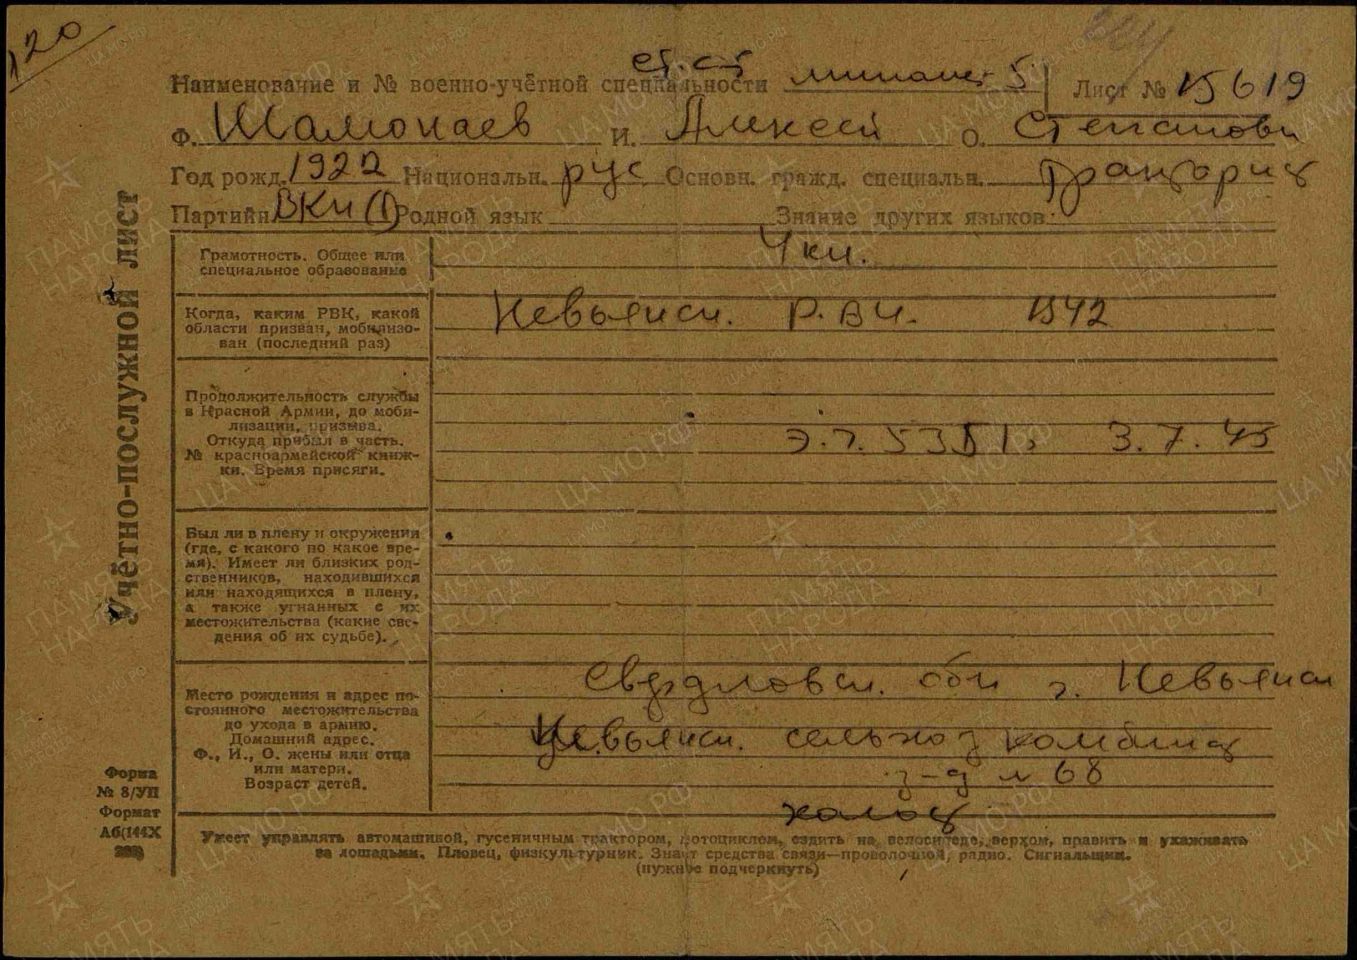 120
Наименование и № военно-учётной специальности ст. с-т миномет 5 Лист № 15619
Ф. Шамонаев И. Алексей О. Степанови
Год рожд. 1922 Национальн. рус Основн. гражд. специальн. Тракторист
Партийн. ВКП(б) Родной язык Знание других языков
Учётно-послужной лист
Грамотность. Общее или
специальное образование
4 кл.
Когда, каким РВК, какой
области призван, мобилизо-
ван (последний раз)
Невьянск. Р.В.К. 1942
Продолжительность службы
в Красной Армии, до моби-
лизации, призыва.
Откуда прибыл в часть.
№ красноармейской книж-
ки. Время присяги.
3.7.45
Был ли в плену и окружении
(где, с какого по какое вре-
мя). Имеет ли близких род-
ственников, находившихся
или находящихся в плену,
а также угнанных с их
местожительства (какие све-
дения об их судьбе).
Место рождения и адрес по-
стоянного местожительства
до ухода в армию.
Домашний адрес.
Ф., И., О. жены или отца
или матери.
Возраст детей.
Свердловск. обл г. Невьянск
Невьянск. сельхоз комбинат
з-д № 68
холост
Форма
№ 8/УП
Формат
А6(144Х
203)
Умеет управлять автомашиной, гусеничным трактором, мотоциклом, ездить на велосипеде, верхом, править и ухаживать
за лошадьми. Пловец, физкультурник. Знает средства связи—проволочной, радио. Сигнальщик.
(нужное подчеркнуть)
ПАМЯТЬ НАРОДА
ЦА МО РФ